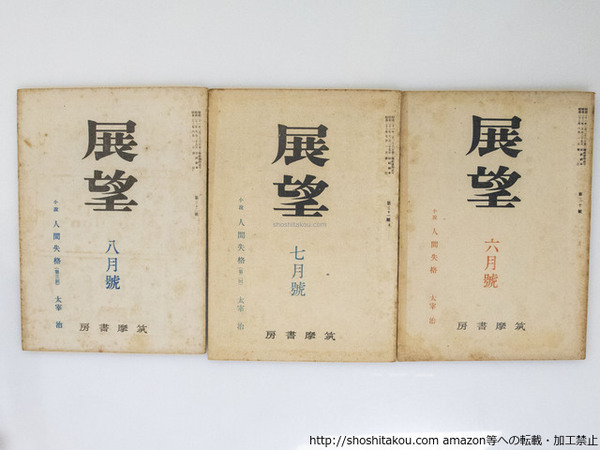 展望
八月號
小説 人間失格(第三回) 太宰 治
房書摩筑
展望
第三十一號
七月號
小説 人間失格(第二回) 太宰 治
房書摩筑
shoshitakou.com
展望
第三十號
六月號
小説 人間失格 太宰 治
房書摩筑
http://shoshitakou.com amazon等への転載・加工禁止